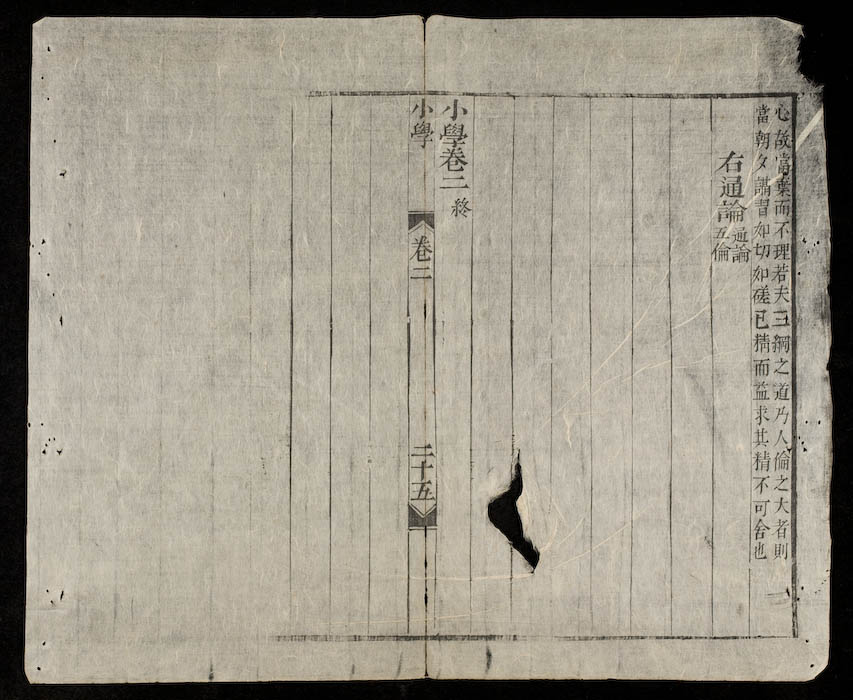 心故當棄而不理若夫三綱之道乃人倫之大者則
當朝夕講習如切如磋已精而益求其精不可舍也
右通論
通論
五倫
小學卷二
終
小學
卷二
二十五